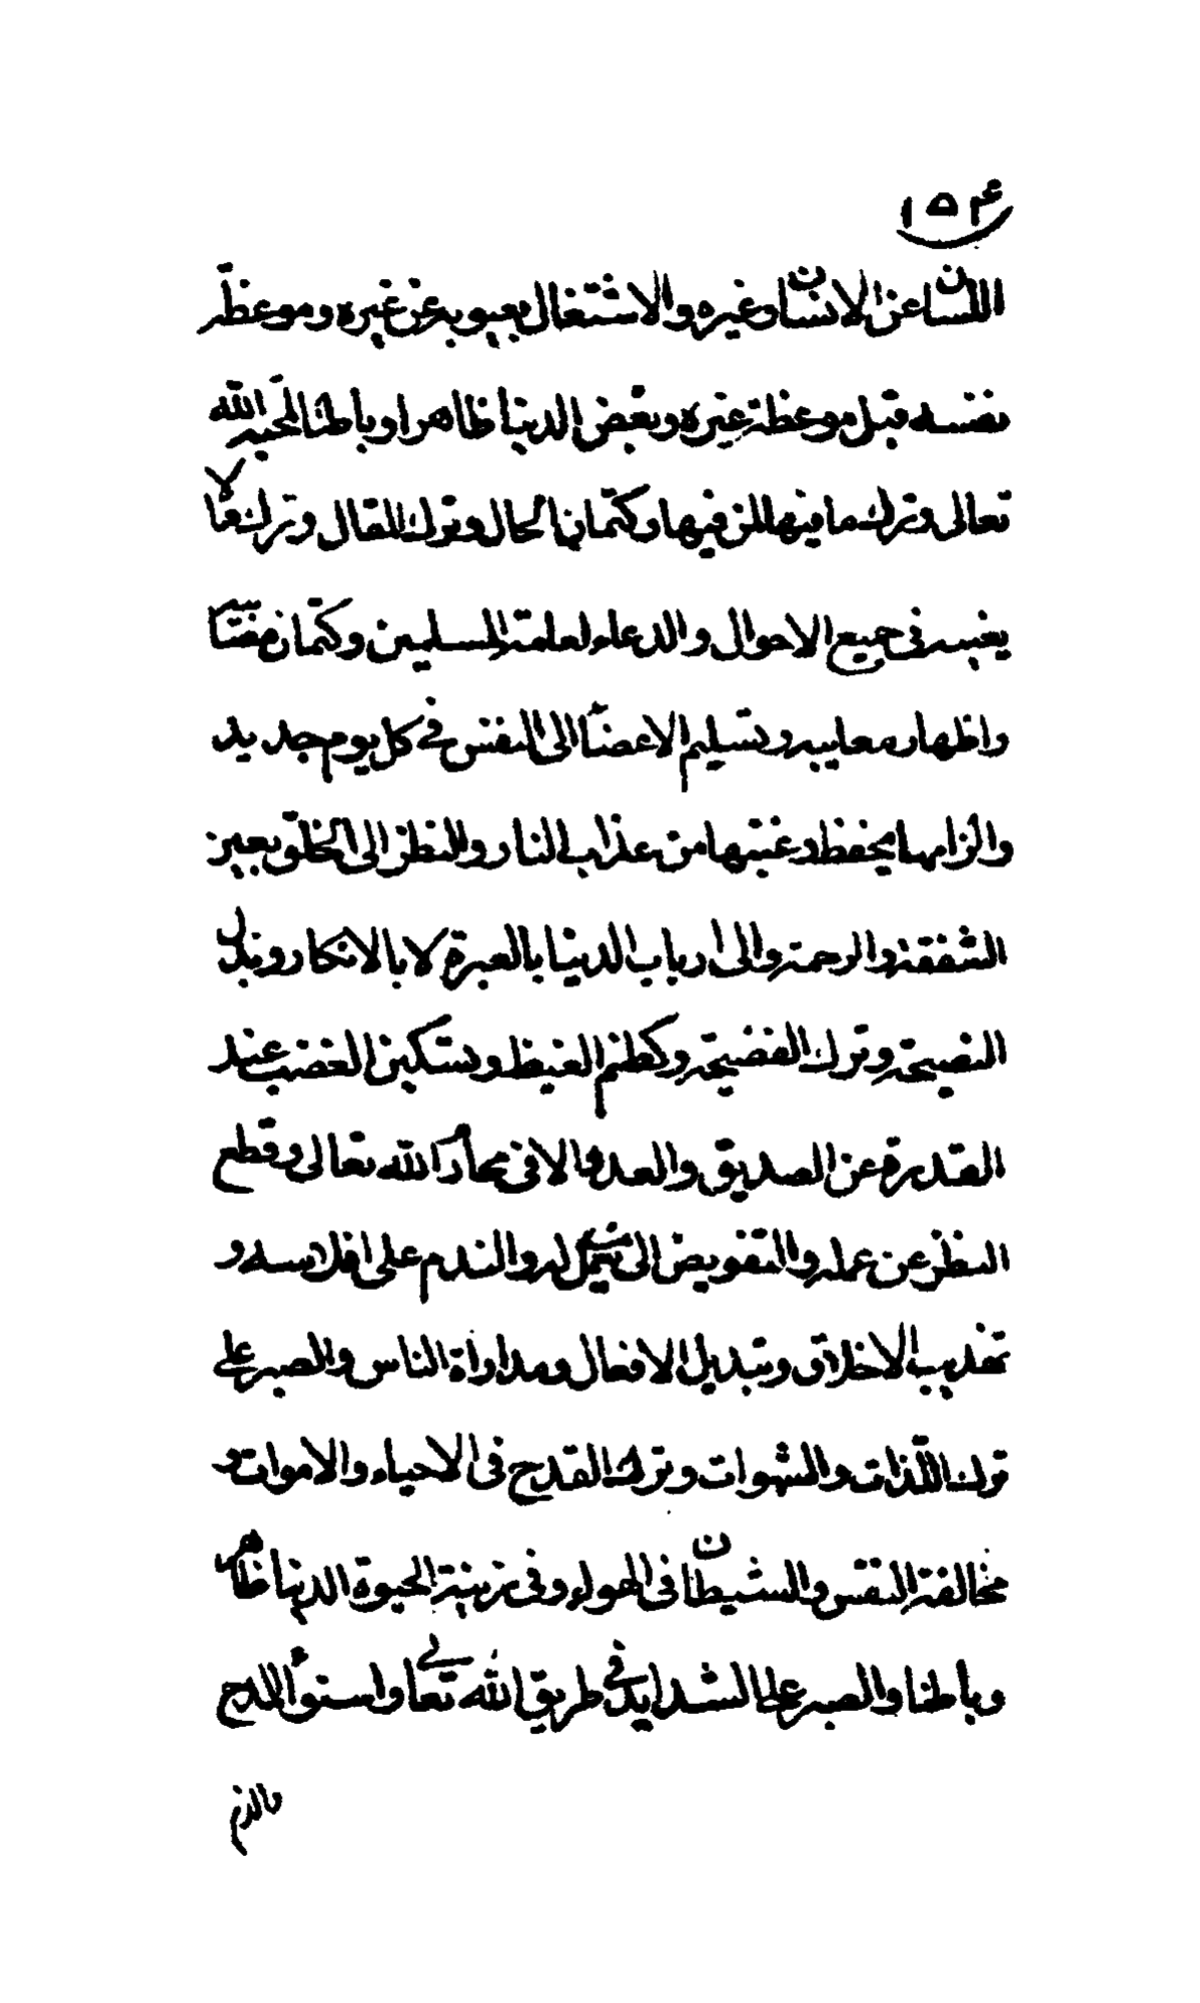 ١٥٤
اللسان عن الانسان وغيره والاشتغال بعيوبه عن غيره وموعظة
نفسه قبل موعظة غيره وبغض الدنيا ظاهرا وباطنا لمحبة الله
تعالى وترك ما فيها لمن فيها وكتمان الحال وترك المقال وترك
في جميع الاحوال والدعاء لعامة المسلمين وكتمان
واظهار معايبه وتسليم الاعضاء الى النفس في كل يوم جديد
والزامها بحفظ رغبتها من عذاب النار والنظر الى الخلق بعين
الشفقة والرحمة والى ارباب الدنيا بالعبرة لا بالانكار وبذل
النصيحة وترك الفضيحة وكظم الغيظ وتسكين الغضب عند
القدرة عن الصديق والعدو الا في محارم الله تعالى وقطع
النظر عن عمله والتفويض الى له والندم على افلاسه و
تهذيب الاخلاق وتبديل الافعال ومداواة الناس والصبر على
ترك اللذات والشهوات وترك القدح في الاحياء والاموات و
مخالفة النفس والشيطان في الهواء وفي زينة الحيوة الدنيا ظاهرا
وباطنا والصبر على الشدايد في طريق الله تعالى واستواء المدح
والذم